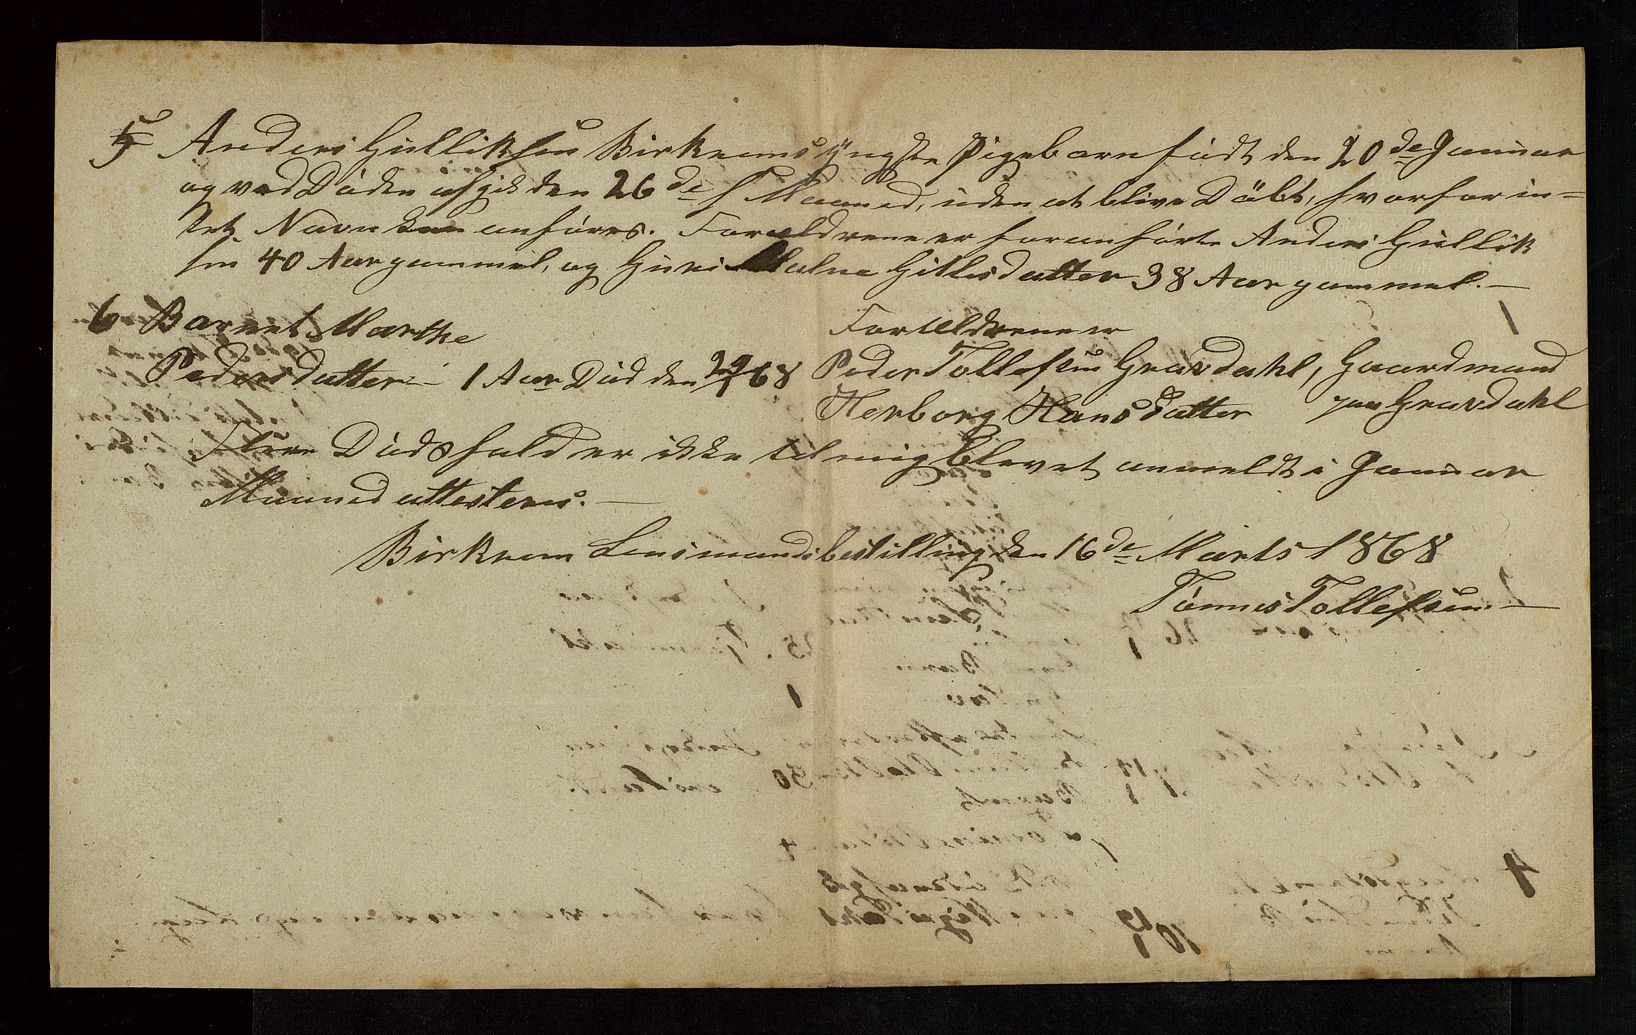 5 Anders Gulliksen Birkrems yngste Pigebarn født den 20de Januar
og ved Døden afgik den 26de s. Maaned, uden at blive Döbt, hvorfor in=
tet Navn kan anföres. Forældrene er foranførte Anders Gullik
sen 40 Aar gammel, og Guri Malne Gitlesdatter 38 Aar gammel. —
6 Barnet Marthe
Pedersdatter — 1 Aar Død den 29/1 68
Forældrene er
Peder Tollefsen Gravdahl, Gaardmand
Herborg Hansdatter paa Gravdahl
Flere Dødsfald er ikke til mig blevet anmeldt i Januar
Maaned attesteres. —
Birkrem Lensmandsbestilling den 16de Marts 1868
Tönnes Tollefsen. —